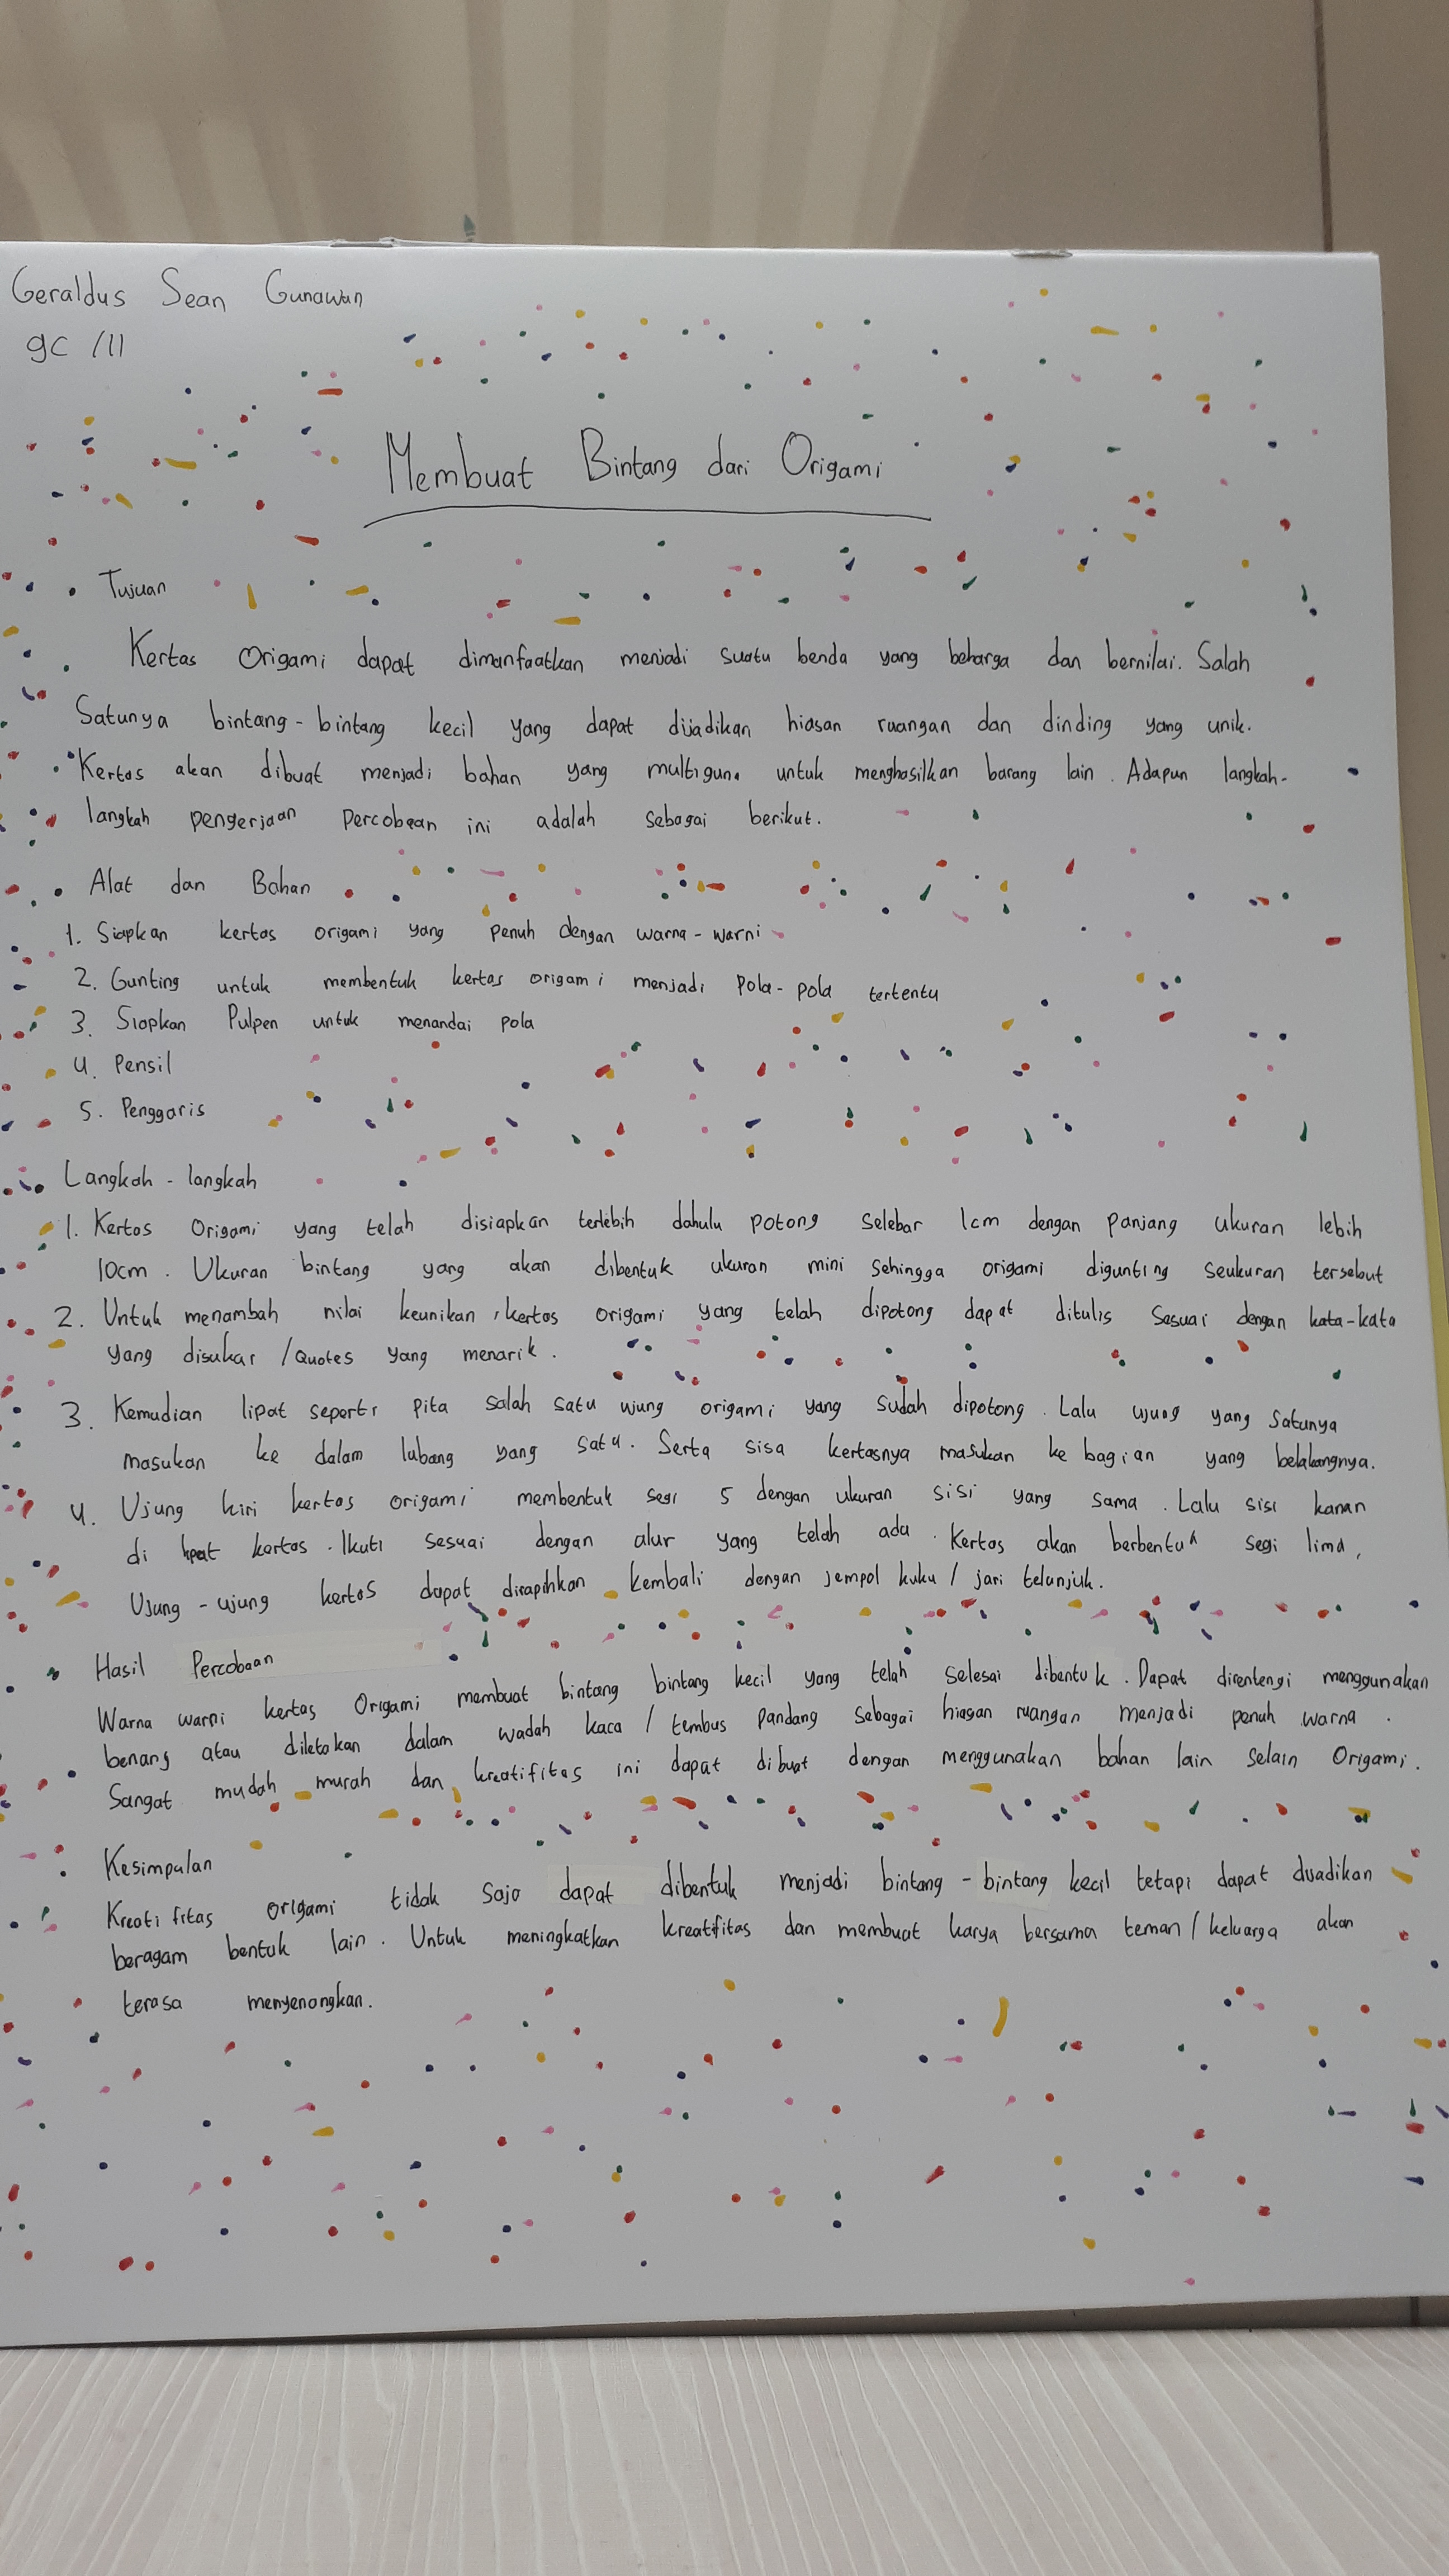 Geraldus Sean Gunawan
9C /11
Membuat Bintang dari Origami
• Tujuan
Kertas Origami dapat dimanfaatkan menjadi suatu benda yang beharga dan bernilai. Salah
Satunya bintang-bintang kecil yang dapat dijadikan hiasan ruangan dan dinding yang unik.
Kertas akan dibuat menjadi bahan yang multiguna untuk menghasilkan barang lain. Adapun langkah-
langkah pengerjaan Percobaan ini adalah sebagai berikut.
• Alat dan Bahan
1. Siapkan kertas origami yang penuh dengan warna-warni
2. Gunting untuk membentuk kertas origami menjadi pola-pola tertentu
3. Siapkan Pulpen untuk menandai pola
4. Pensil
5. Penggaris
• Langkah - langkah
1. Kertas Origami yang telah disiapkan terlebih dahulu potong selebar 1cm dengan panjang ukuran lebih
10cm. Ukuran bintang yang akan dibentuk ukuran mini sehingga origami digunting seukuran tersebut
2. Untuk menambah nilai keunikan, kertas origami yang telah dipotong dapat ditulis sesuai dengan kata-kata
yang disukai /Quotes yang menarik.
3. Kemudian lipat seperti pita salah satu ujung origami yang sudah dipotong. Lalu ujung yang satunya
masukan ke dalam lubang yang satu. Serta sisa kertasnya masukan ke bagian yang belakangnya.
4. Ujung kiri kertas origami membentuk segi 5 dengan ukuran sisi yang sama. Lalu sisi kanan
di lipat kertas. Ikuti sesuai dengan alur yang telah ada. Kertas akan berbentuk segi lima,
Ujung - ujung kertas dapat dirapihkan kembali dengan jempol kuku / jari telunjuk.
• Hasil Percobaan
Warna warni kertas Origami membuat bintang bintang kecil yang telah selesai dibentuk. Dapat direntengi menggunakan
benang atau diletakan dalam wadah kaca / tembus pandang sebagai hiasan ruangan menjadi penuh warna.
Sangat mudah murah dan kreatifitas ini dapat dibuat dengan menggunakan bahan lain selain Origami.
• Kesimpulan
Kreatifitas origami tidak saja dapat dibentuk menjadi bintang-bintang kecil tetapi dapat dijadikan
beragam bentuk lain. Untuk meningkatkan kreatifitas dan membuat karya bersama teman / keluarga akan
terasa menyenangkan.